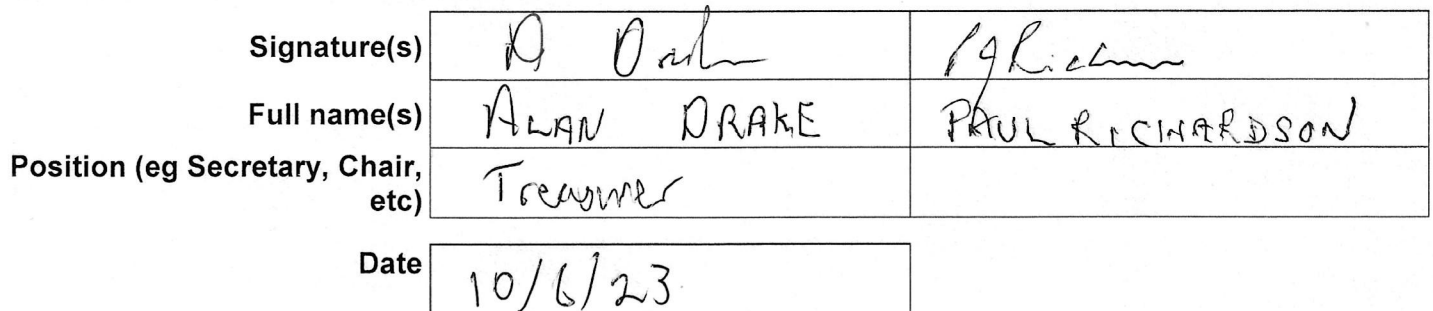 Signature(s)
Full name(s) ALAN DRAKE PAUL RICHARDSON
Position (eg Secretary, Chair,
etc) Treasurer
Date 10/6/23